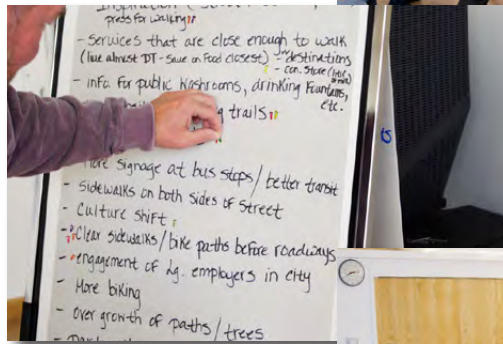 press for walking
- Services that are close enough to walk
(live almost DT - Save on Food closest) - destinations
- con. store
- info. for public washrooms, drinking fountains,
etc.
trails
- More signage at bus stops / better transit
- Sidewalks on both sides of street
- Culture shift
- Clear sidewalks / bike paths before roadways
- engagement of Lg. employers in city
- More biking
- Over growth of paths / trees